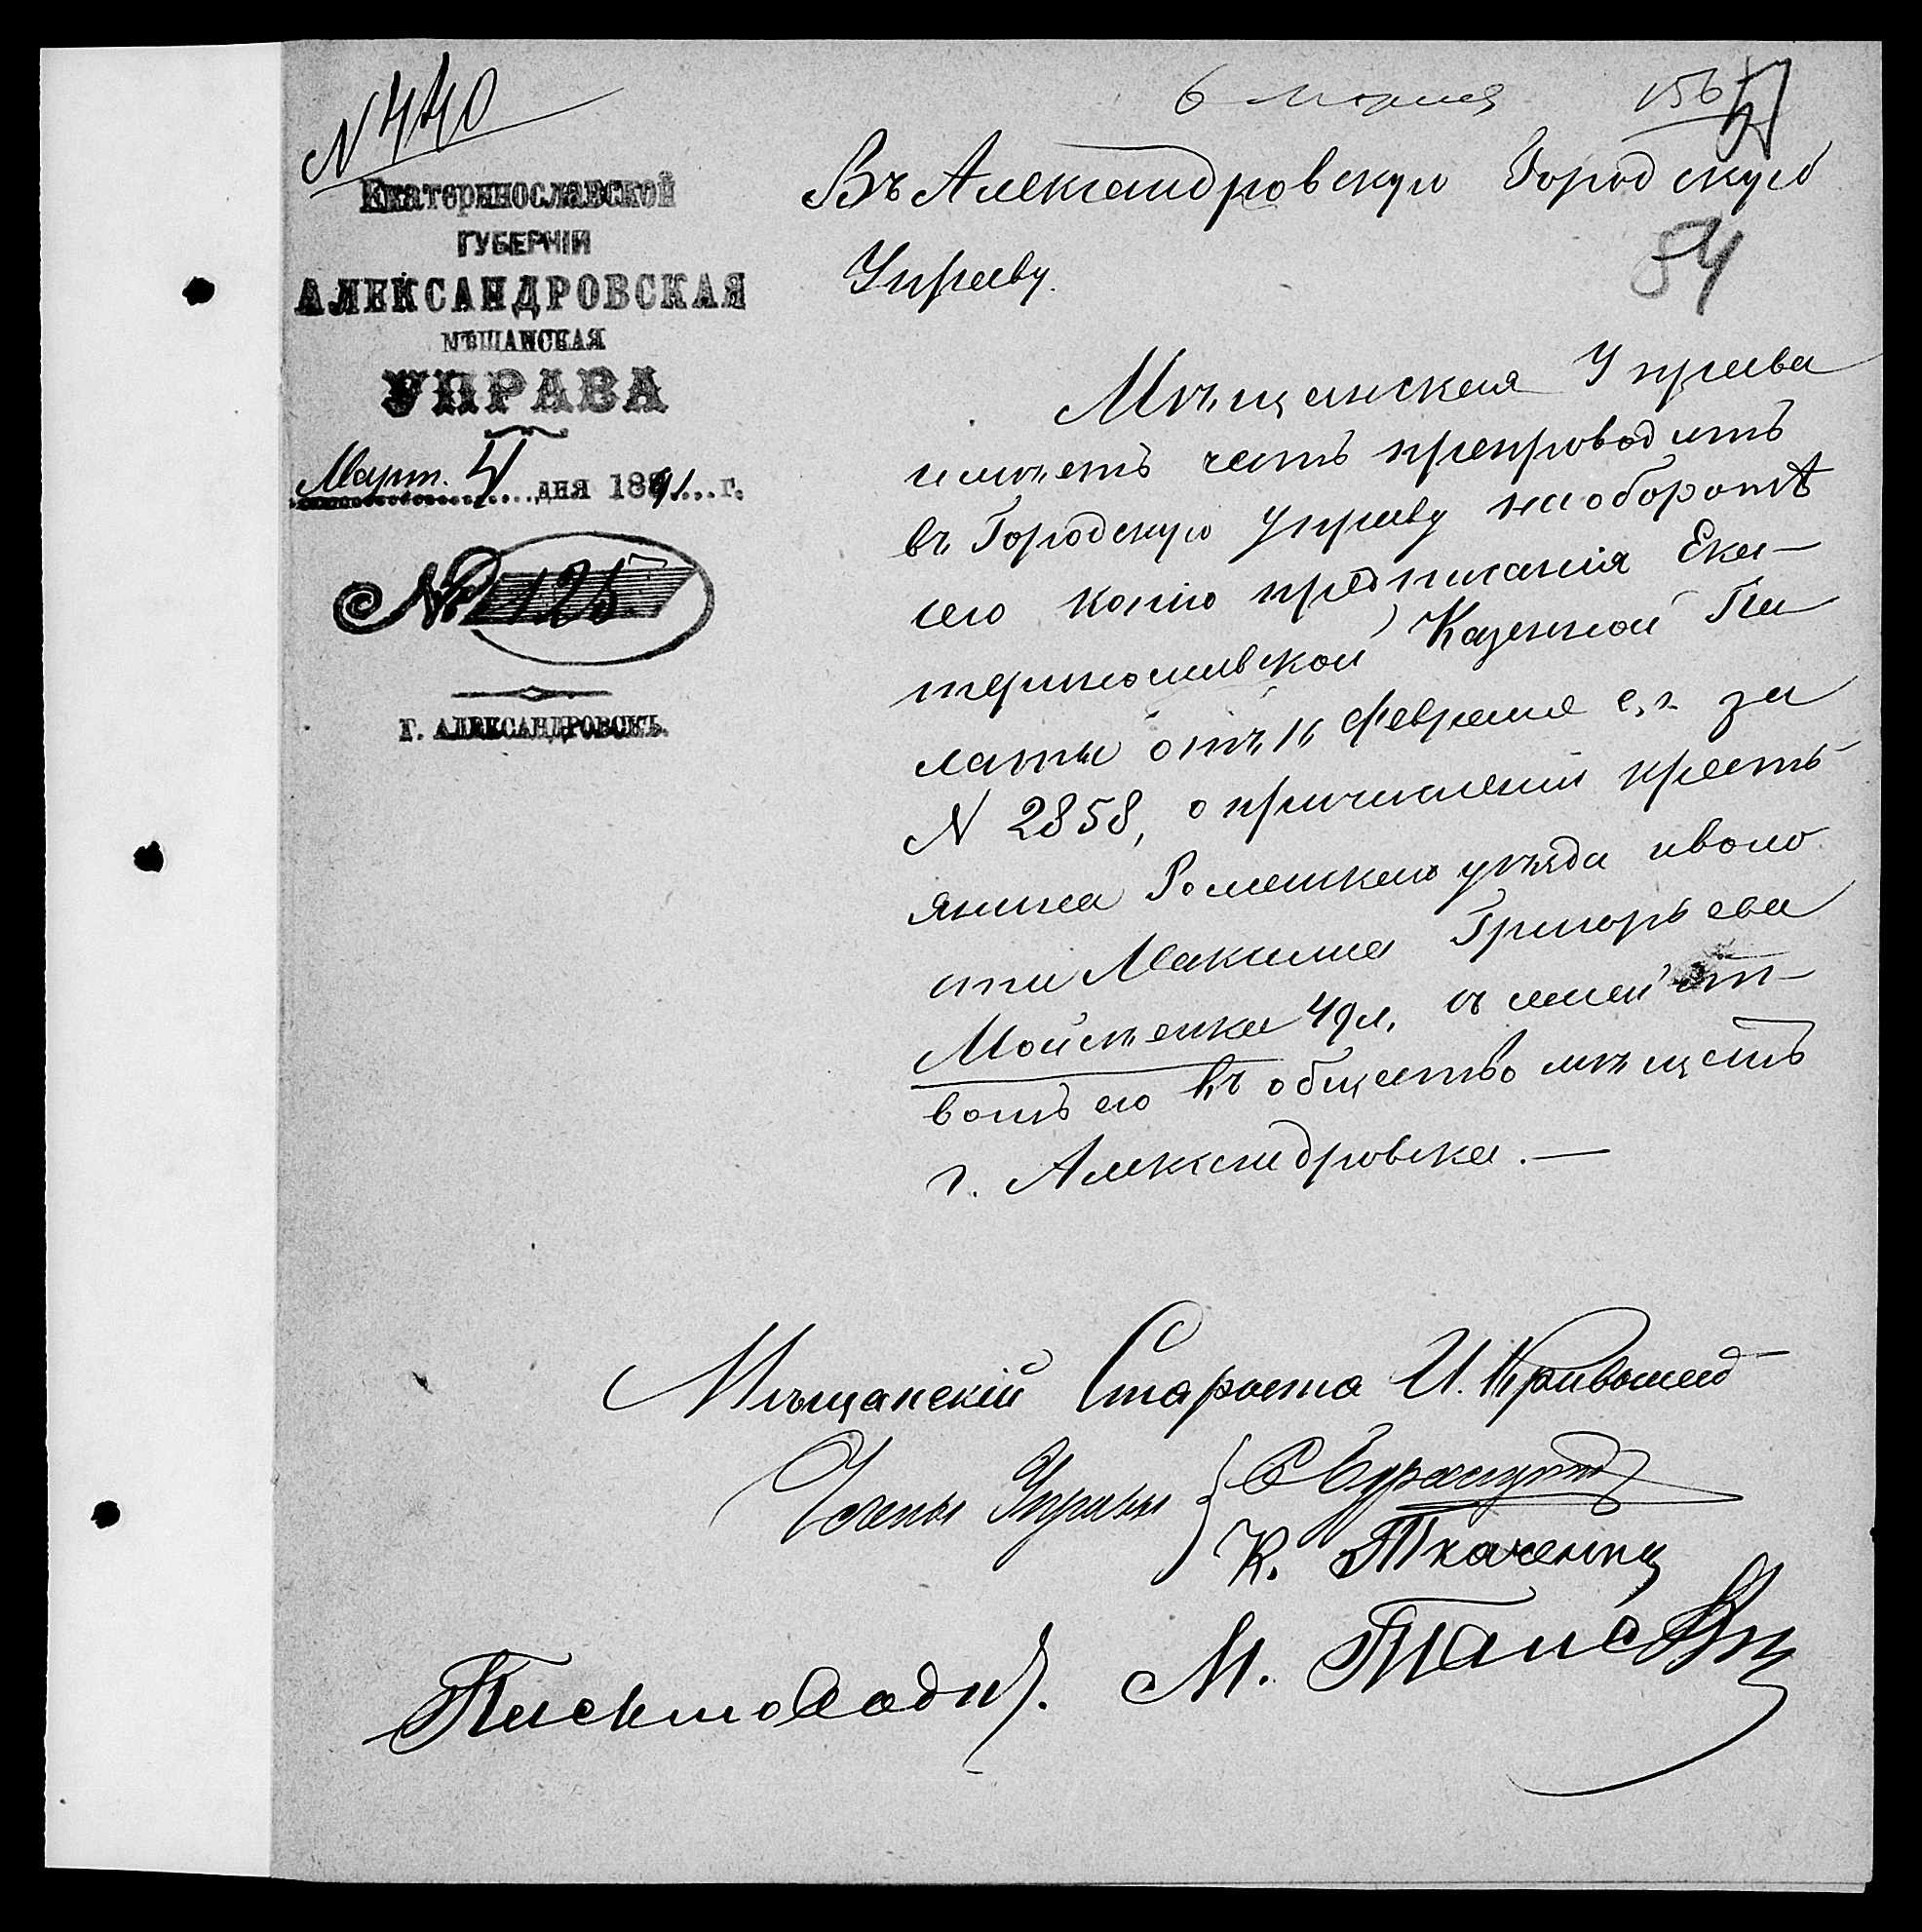 N 440
6 марта
156
54
Екатеринославской
ГУБЕРНІИ
АЛЕКСАНДРОВСКАЯ
МѢЩАНСКАЯ
УПРАВА
Март. 4 дня 1891 г.
№ 125
Г. АЛЕКСАНДРОВСКЪ.
Въ Александровскую Городскую
Управу.
Мѣщанская Управа
имѣетъ честь препроводить
въ Городскую Управу на оборотѣ
сего копію предписанія Ека-
теринославской Казенной Па
латы отъ 11 февраля с. г. за
N 2858, о причисленіи кресть
янина Роменскаго уѣзда и воло
сти Максима Григорьева
Мойсѣенка 49 л. съ семейст-
вомъ его въ общество мѣщанъ
г. Александровска. —
Мѣщанскій Староста И. Кривошеев
Члены Управы
К. Ткаченко
Письмоводит.
М.